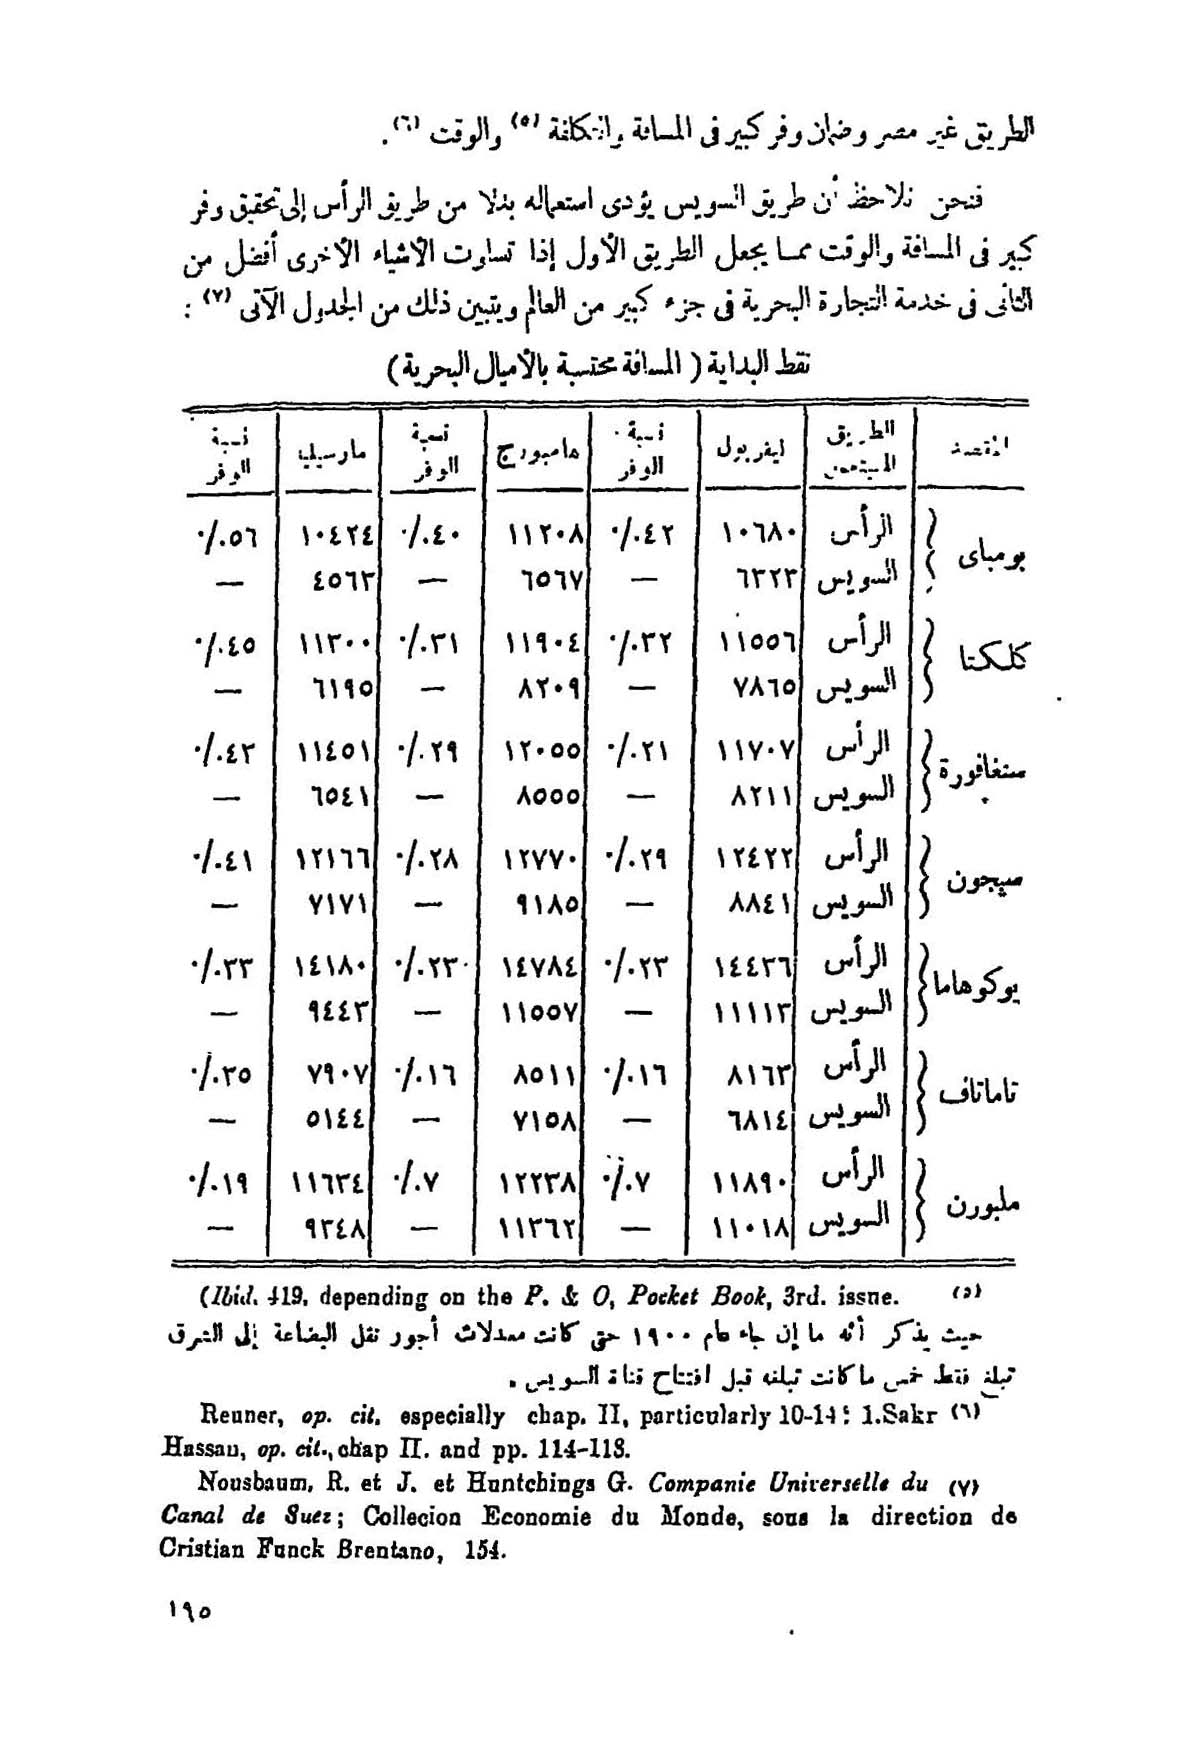 الطريق غير مصر وضمان وفر كبير فى المسافة والتكلفة (٥) والوقت (٦) .
فنحن نلاحظ أن طريق السويس يؤدى استعماله بدلا من طريق الرأس إلى تحقيق وفر
كبير فى المسافة والوقت مما يجعل الطريق الأول إذا تساوت الأشياء الأخرى أفضل من
الثانى فى خدمة التجارة البحرية فى جزء كبير من العالم ويتبين ذلك من الجدول الآتى (٧) :
نقط البداية ( المسافة محتسبة بالأميال البحرية )
المقصد الطريق المستعمل ليفربول نسبة الوفر هامبورج نسبة الوفر مارسيليا نسبة الوفر
بومباى الرأس ١٠٦٨٠ ٤٢.٪ ١١٢٠٨ ٤٠.٪ ١٠٤٢٤ ٥٦.٪
السويس ٦٣٢٣ — ٦٥٦٧ — ٤٥٦٣ —
كلكتا الرأس ١١٥٥٦ ٣٢.٪ ١١٩٠٤ ٣١.٪ ١١٣٠٠ ٤٥.٪
السويس ٧٨٦٥ — ٨٢٠٩ — ٦١٩٥ —
سنغافورة الرأس ١١٧٠٧ ٢١.٪ ١٢٠٥٥ ٢٩.٪ ١١٤٥١ ٤٣.٪
السويس ٨٢١١ — ٨٥٥٥ — ٦٥٤١ —
سيجون الرأس ١٢٤٢٢ ٢٩.٪ ١٢٧٧٠ ٢٨.٪ ١٢١٦٦ ٤١.٪
السويس ٨٨٤١ — ٩١٨٥ — ٧١٧١ —
يوكوهاما الرأس ١٤٤٣٦ ٢٣.٪ ١٤٧٨٤ ٢٣.٪ ١٤١٨٠ ٣٣.٪
السويس ١١١١٣ — ١١٥٥٧ — ٩٤٤٣ —
تاماتاف الرأس ٨١٦٣ ١٦.٪ ٨٥١١ ١٦.٪ ٧٩٠٧ ٣٥.٪
السويس ٦٨١٤ — ٧١٥٨ — ٥١٤٤ —
ملبورن الرأس ١١٨٩٠ ٧.٪ ١٢٢٣٨ ٧.٪ ١١٦٣٤ ١٩.٪
السويس ١١٠١٨ — ١١٣٦٢ — ٩٣٤٨ —
(Ibid. 419. depending on the P. & O, Pocket Book, 3rd. issne. (٥)
حيث يذكر أنه ما إن جاء عام ١٩٠٠ حتى كانت معدلات أجور نقل البضاعة إلى الشرق
تبلغ فقط خمس ما كانت تبلغه قبل افتتاح قناة السويس .
Renner, op. cit. especially chap. II, particularly 10-14 : 1.Sakr (٦)
Hassan, op. cit., chap II. and pp. 114-118.
Nousbaum, R. et J. et Huntchings G. Companie Universelle du (٧)
Canal de Suez ; Collecion Economie du Monde, sous la direction de
Cristian Funck Brentano, 154.
١٩٥